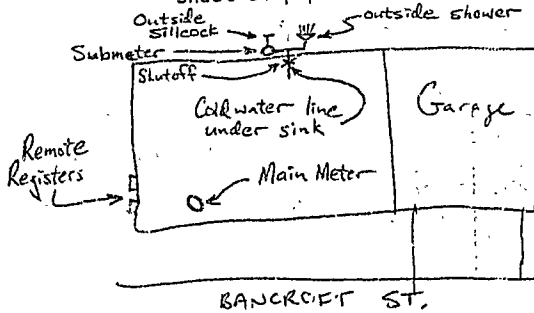 Outside
sillcock
outside shower
Submeter
Shutoff
Cold water line
under sink
Garage
Remote
Registers
Main Meter
BANCROFT ST.